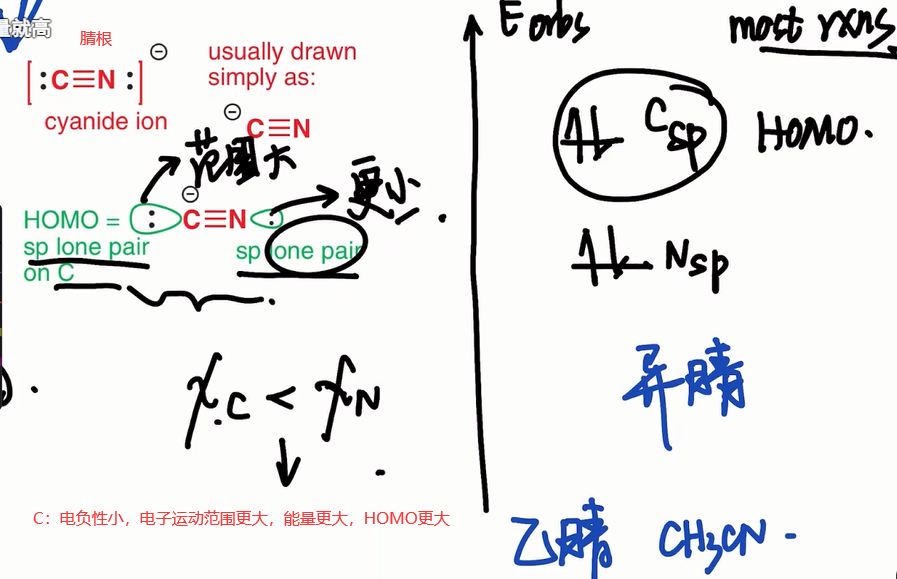 量就高
腈根
[:C≡N:]⊖
cyanide ion
usually drawn
simply as:
⊖
C≡N
范围大
更小
HOMO = : ⊖C≡N :
sp lone pair
on C
sp lone pair
χC < χN
C：电负性小，电子运动范围更大，能量更大，HOMO更大
E orbs
most rxns
Csp HOMO.
Nsp
异腈
乙腈 CH3CN